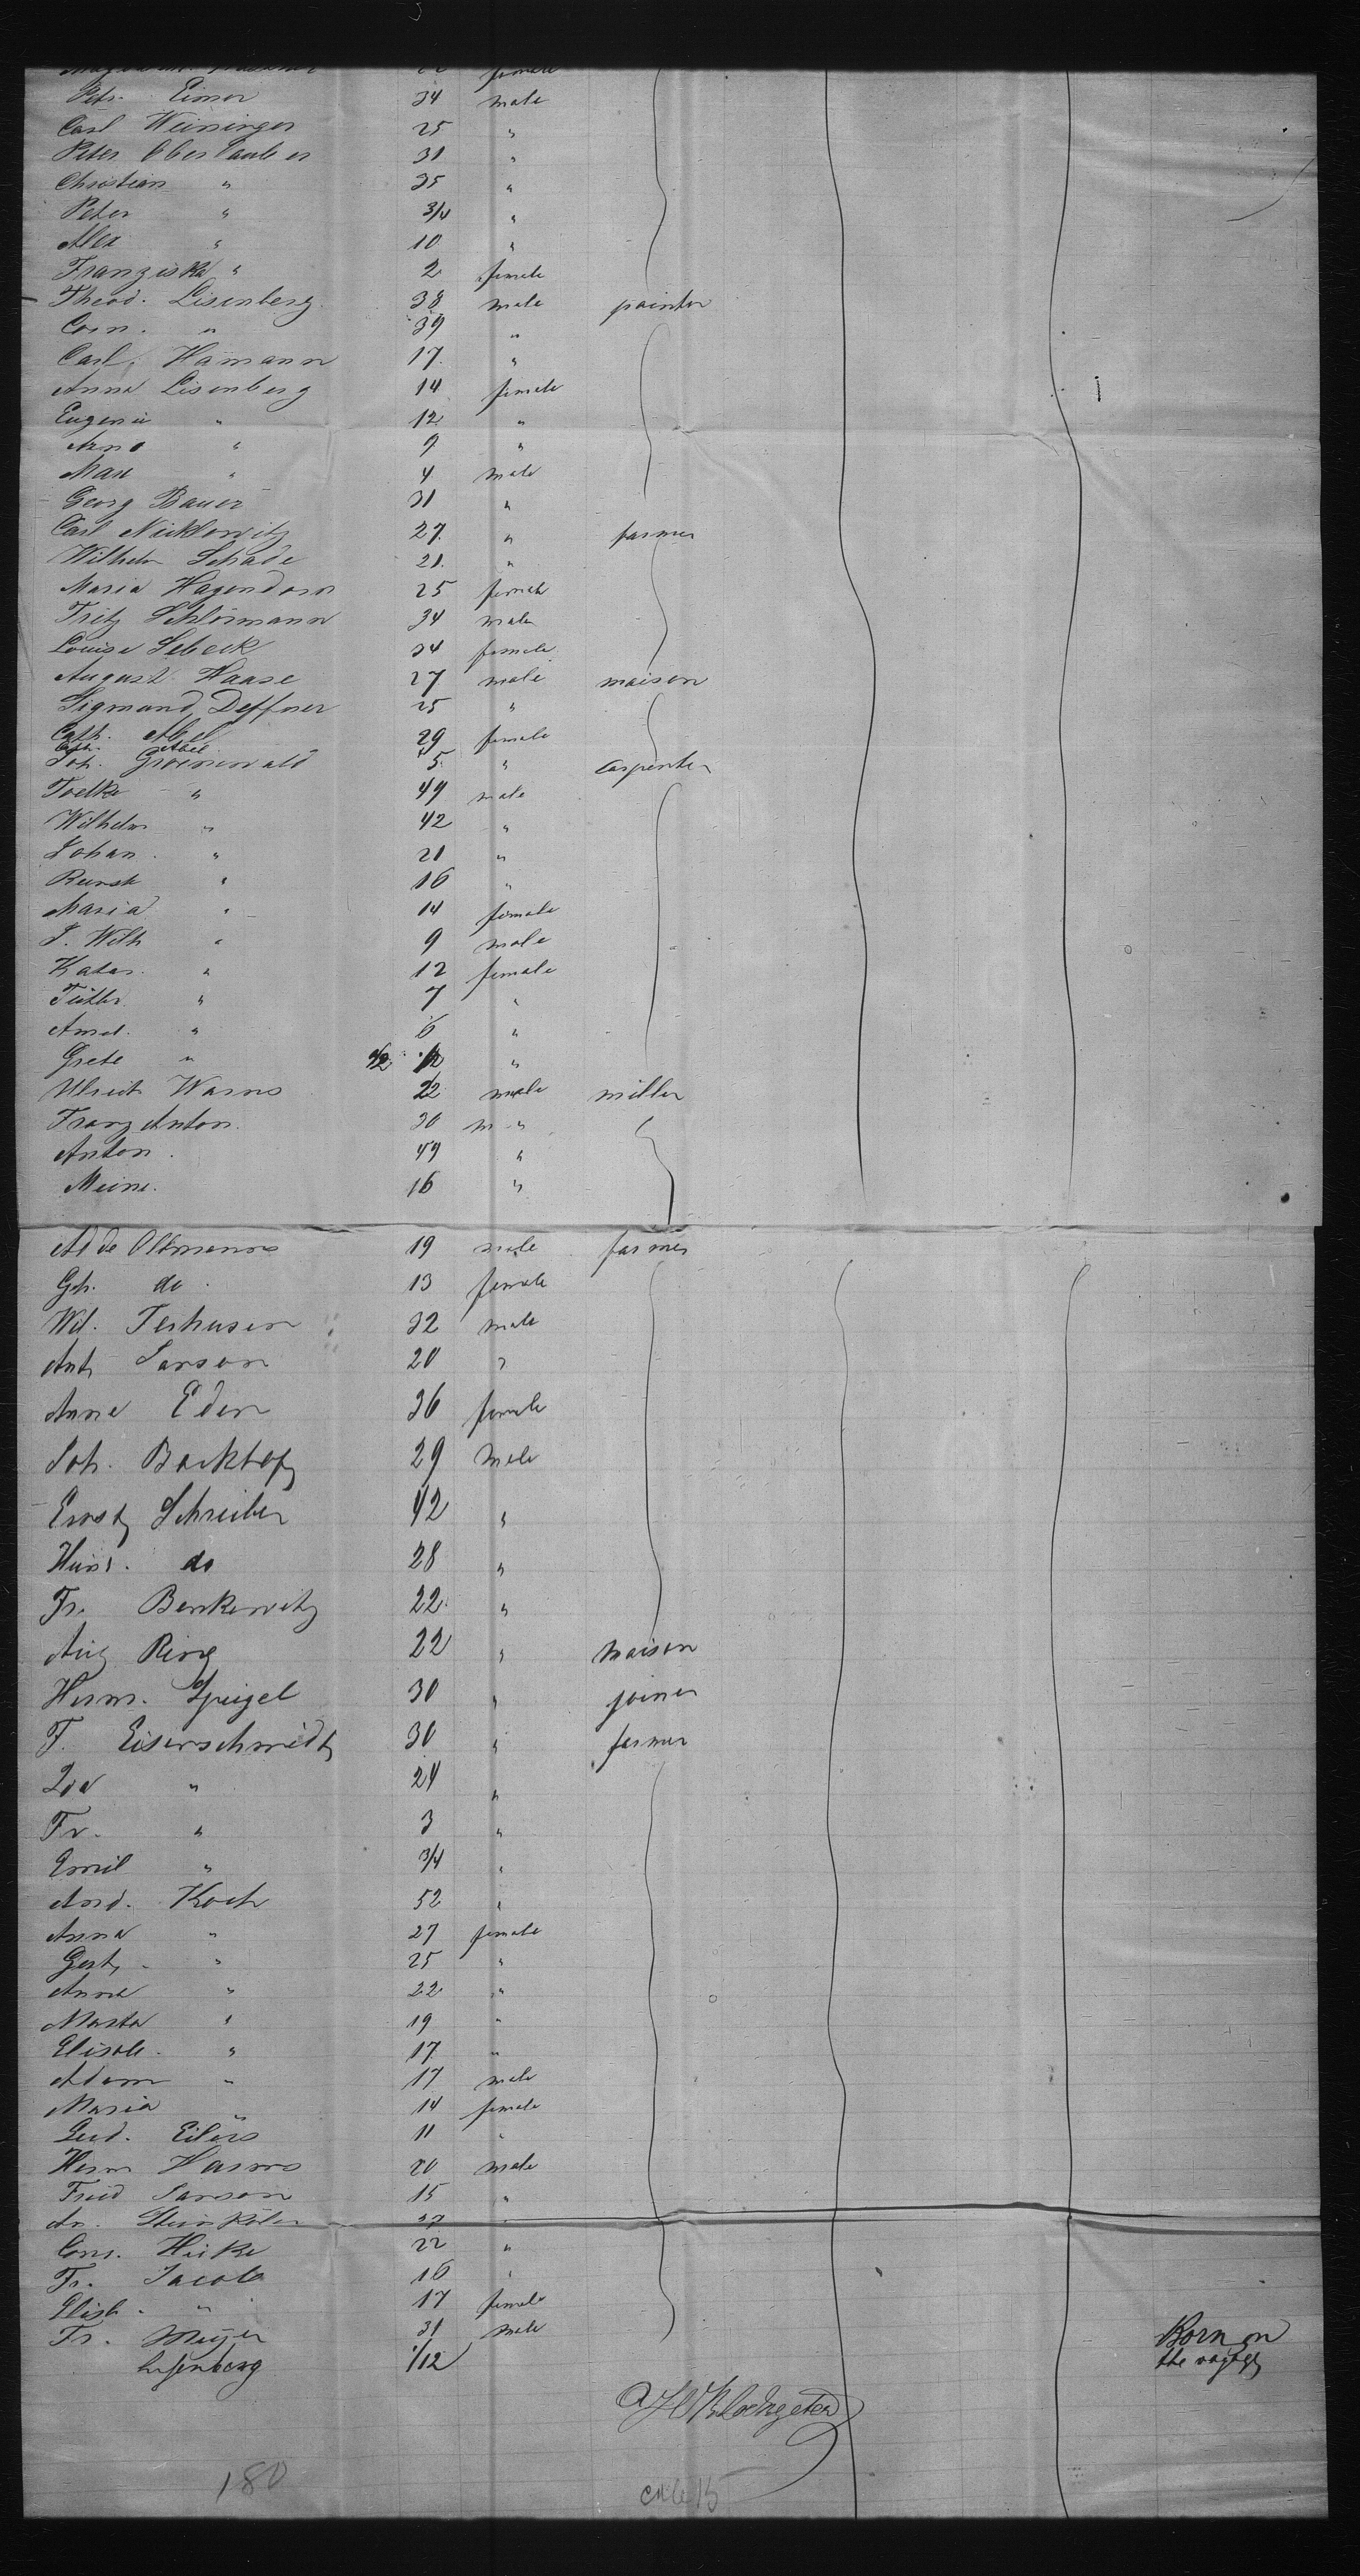 Petr. Eimer 34 male
Carl Weininger 25 "
Peter Obertauber 31 "
Christian " 35 "
Peter " 3/4 "
Alex " 10 "
Franziska " 2 female
Theod. Lisenberg 38 male painter
Corn. " 39 "
Carl Hamann 17 "
Anna Lisenberg 14 female
Eugenie " 12 "
Arno " 9 "
Max " 4 male
Georg Bauer 31 "
Carl Nicklowitz 27 " farmer
Wilhelm Schade 21 "
Maria Hagendorn 25 female
Fritz Schlörmann 34 male
Louise Sebeck 34 female
August Haase 27 male maison
Sigmund Deffner 25 "
Cath. Abel 29 female
Cath. Abel
Joh. Groenewald 5 " carpenter
Foelke " 44 male
Wilhelm " 42 "
Johan " 21 "
" 16 "
Maria " 14 female
J. Wilh " 9 male
Katar. " 12 female
" 7 "
Amel. " 6 "
Grete " "
Ulreich Warns 22 male miller
Franz Anton 30 m "
Anton 49 "
Meine. 16 "
Adde Oltmanns 19 male farmer
Geh. do 13 female
Wil. Terhusen 32 male
Ant. Janson 20 "
Anne Eden 36 female
Joh. 29 male
Ernst Schreiber 42 "
Heinr. do 28 "
Fr. Berkewitz 22 "
Aug Ring 22 " maison
Herm. Speigel 30 " joiner
F. Eisenschmidt 30 " farmer
Ida " 24 "
Fr. " 3 "
Emil " 3/4 "
And. Koch 52 "
Anna " 27 female
Gert. " 25 "
Anna " 22 "
Marta " 19 "
Elisab. " 17 "
Adam " 17 male
Maria " 14 female
Gerd. Eilers 11 "
Herm Harms 20 male
Fried Janson 15 "
An. "
Corn. Heike 22 "
Fr. Jacob 16 "
Elisb. " 17 female
Fr. Meyer 31 male
Lisenberg 1/12 Born on
the voyage
180